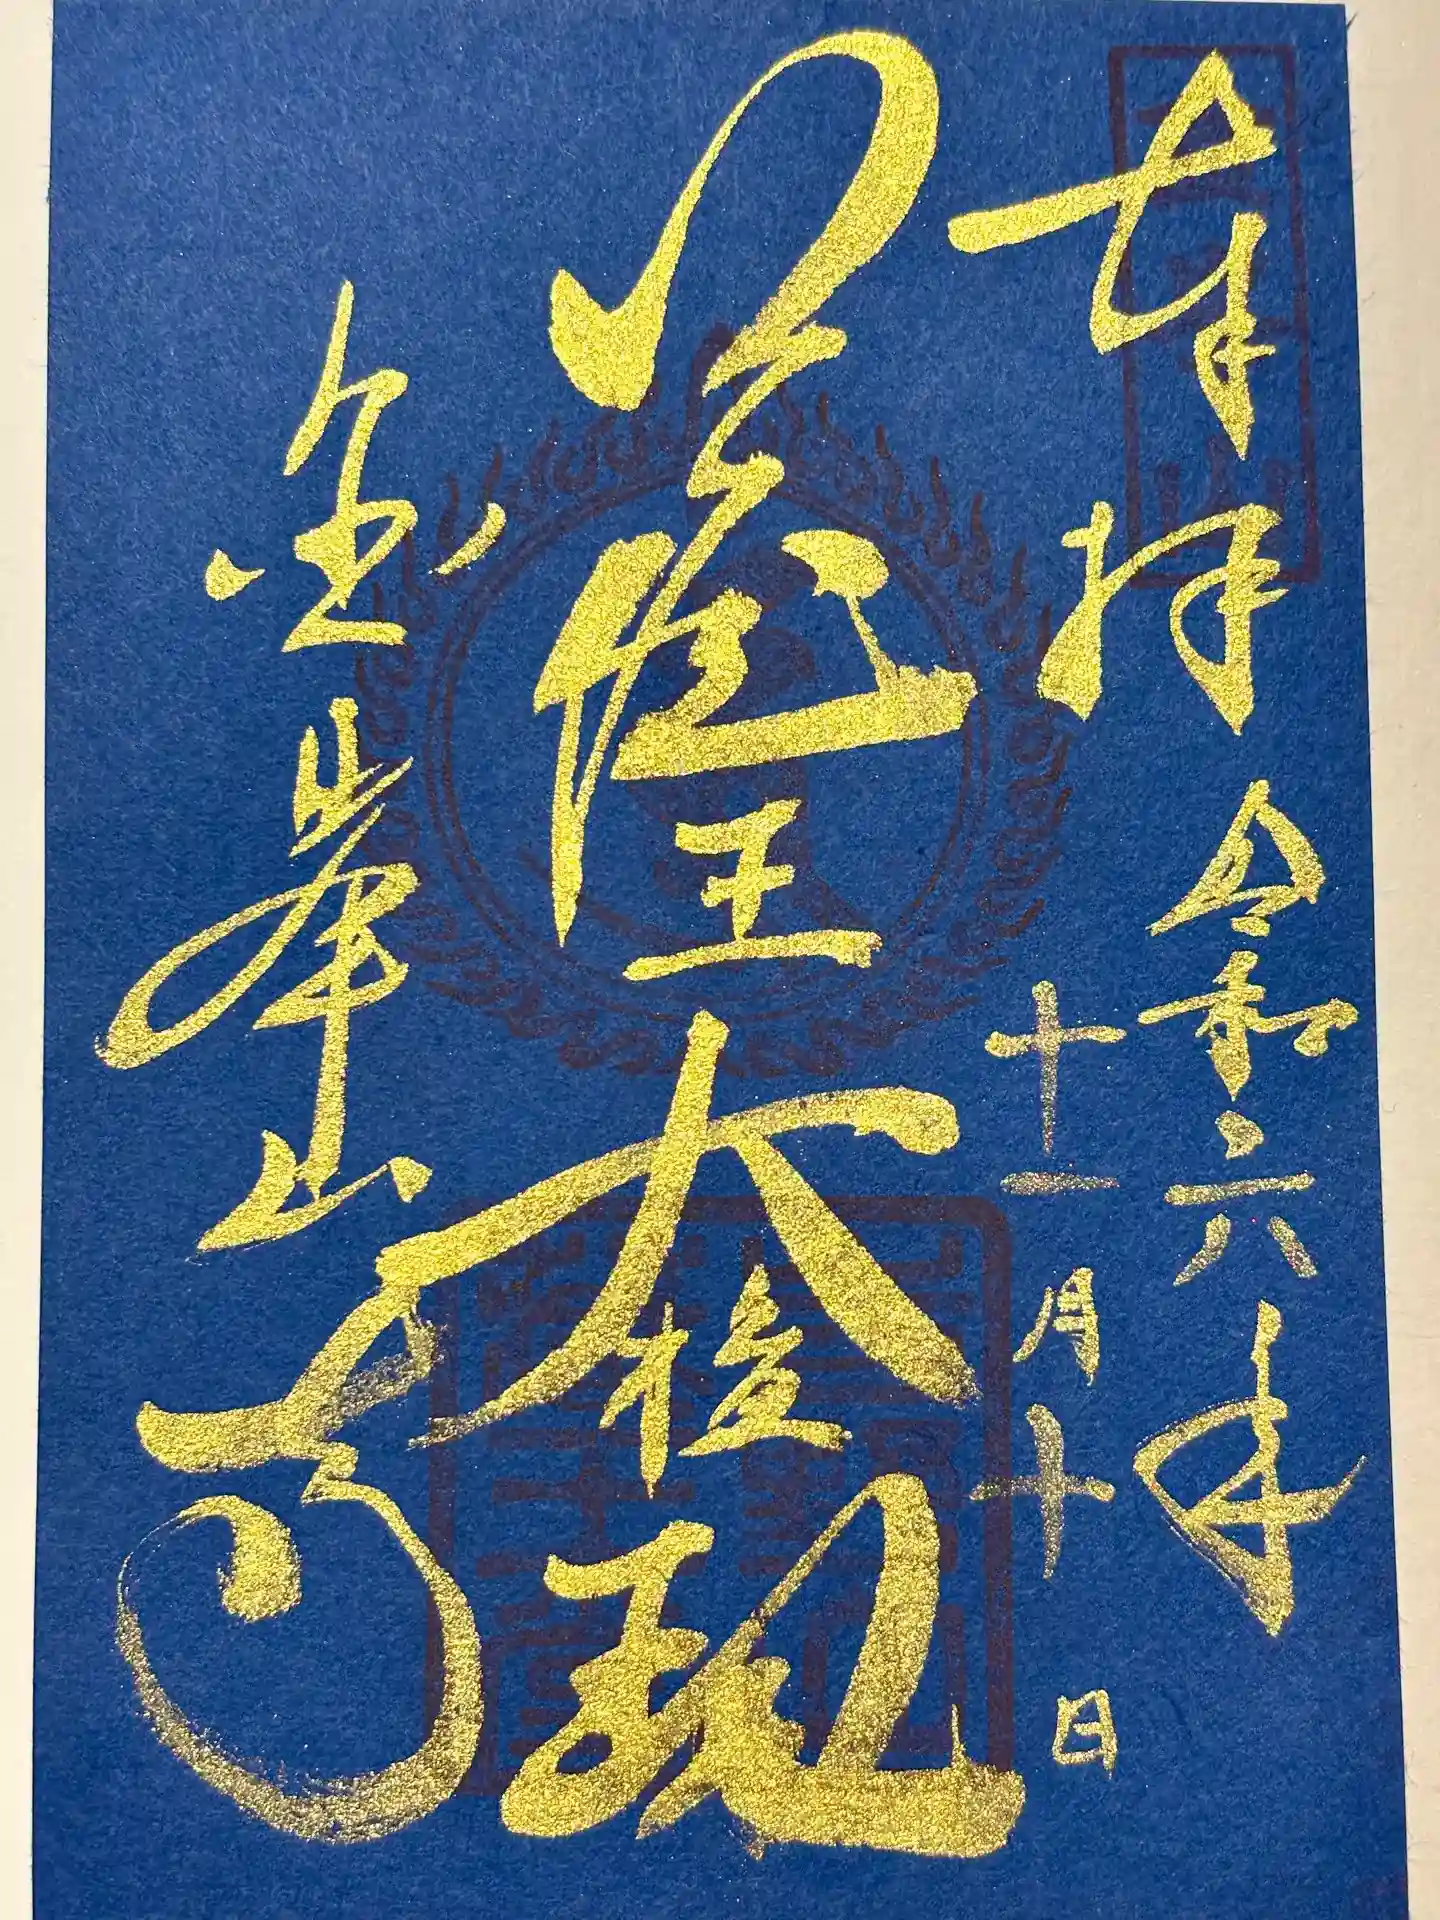 奉拝
令和六年
十一月十日
蔵王大権現
金峯山寺